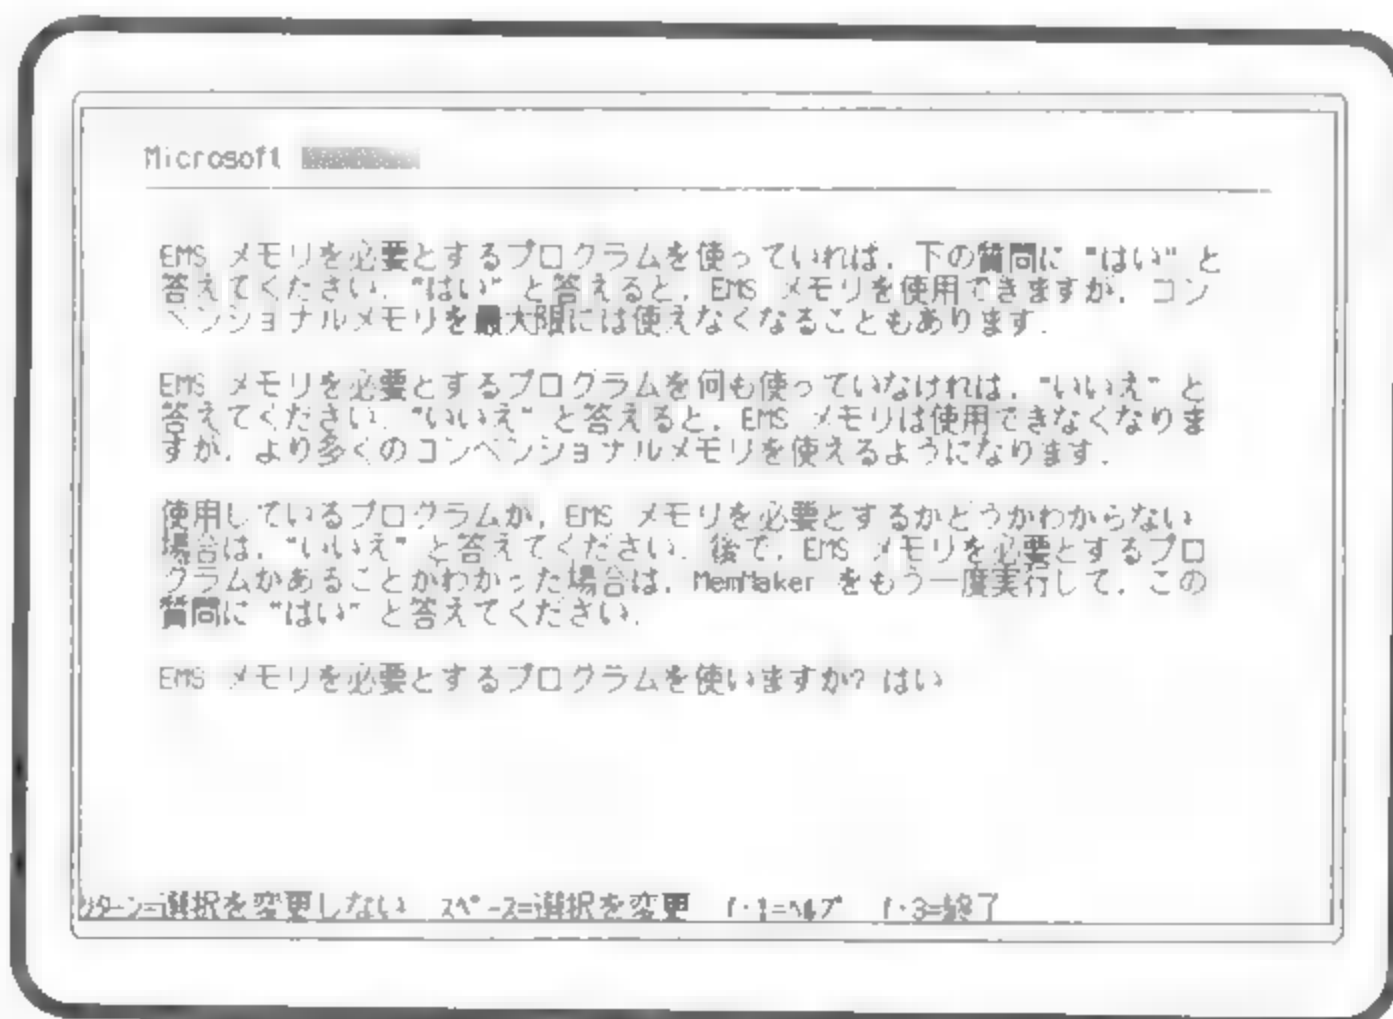 Microsoft
EMS メモリを必要とするプログラムを使っていれば、下の質問に "はい" と
答えてください. "はい" と答えると, EMS メモリを使用できますが, コン
ベンショナルメモリを最大限には使えなくなることもあります.
EMS メモリを必要とするプログラムを何も使っていなければ, "いいえ" と
答えてください. "いいえ" と答えると, EMS メモリは使用できなくなりま
すが, より多くのコンベンショナルメモリを使えるようになります.
使用しているプログラムが, EMS メモリを必要とするかどうかわからない
場合は, "いいえ" と答えてください. 後で, EMS メモリを必要とするプロ
グラムがあることがわかった場合は, MemMaker をもう一度実行して, この
質問に "はい" と答えてください.
EMS メモリを必要とするプログラムを使いますか? はい
リターン=選択を変更しない スペース=選択を変更 f・1=ヘルプ f・3=終了